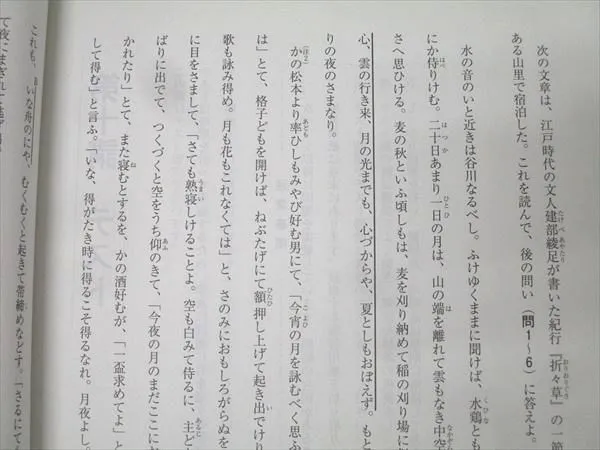 次の文章は、江戸時代の文人建部綾足が書いた紀行『折々草』の一節
ある山里で宿泊した。これを読んで、後の問い（問１～６）に答えよ。
水の音のいと近きは谷川なるべし。ふけゆくままに聞けば、水鶏とも
にか侍りけむ。二十日あまり一日の月は、山の端を離れて雲もなき中空
さへ思ひける。麦の秋といふ頃しもは、麦を刈り納めて稲の刈り場に
心、雲の行き来、月の光までも、心づからや、夏としもおぼえず。もと
りの夜のさまなり。
かの松本より率ひしもみやび好む男にて、「今宵の月を詠むべく思ふ
は」とて、格子どもを開けば、ねぶたげにて額押し上げて起き出でけり
歌も詠み得め。月も花もこれなくては」と、さのみにおもしろがらぬを
に目をさまして、「さても熟寝しけることよ。空も白みて侍るに、主ど
ばりに出でて、つくづくと空をうち仰のきて、「今夜の月のまだここに
かれたり」とて、また寝むとするを、かの酒好むが、「一盃求めてよ」と
して得む」と言ふ。「いな、得がたき時に得るこそ得るなれ。月夜よし。
これも、いな舟のにや、むくむくと起きて帯締めなどす。「さるにて
て夜にまぎれて